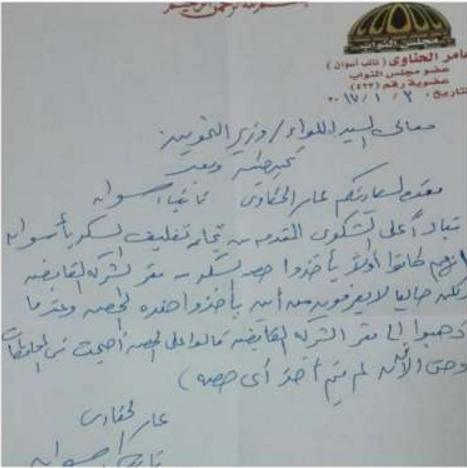 بسم الله الرحمن الرحيم
مجلس النواب
عامر الحناوى ( نائب أسوان )
عضو مجلس النواب
عضوية رقم (٤٢٢)
التاريخ: ٣ / ١ / ٢٠١٧
معالى السيد اللواء / وزير التموين
تحية طيبه وبعد
مقدمه لسيادتكم عامر الحناوى نائب أسوان
بناءاً على الشكوى المقدمه من تعبئة وتغليف السكر بأسوان
انهم كانوا أولاً يأخذوا حصه السكر من مقر الشركه القابضه
ولكن حاليا لا يعرفون من أين يأخذوا هذه الحصه وعندما
ذهبوا إلى مقر الشركه القابضه قالوا على الحصه أصبحت فى المحافظات
وحتى الآن لم يتم أخذ أى حصه )
عامر الحناوى
نائب أسوان